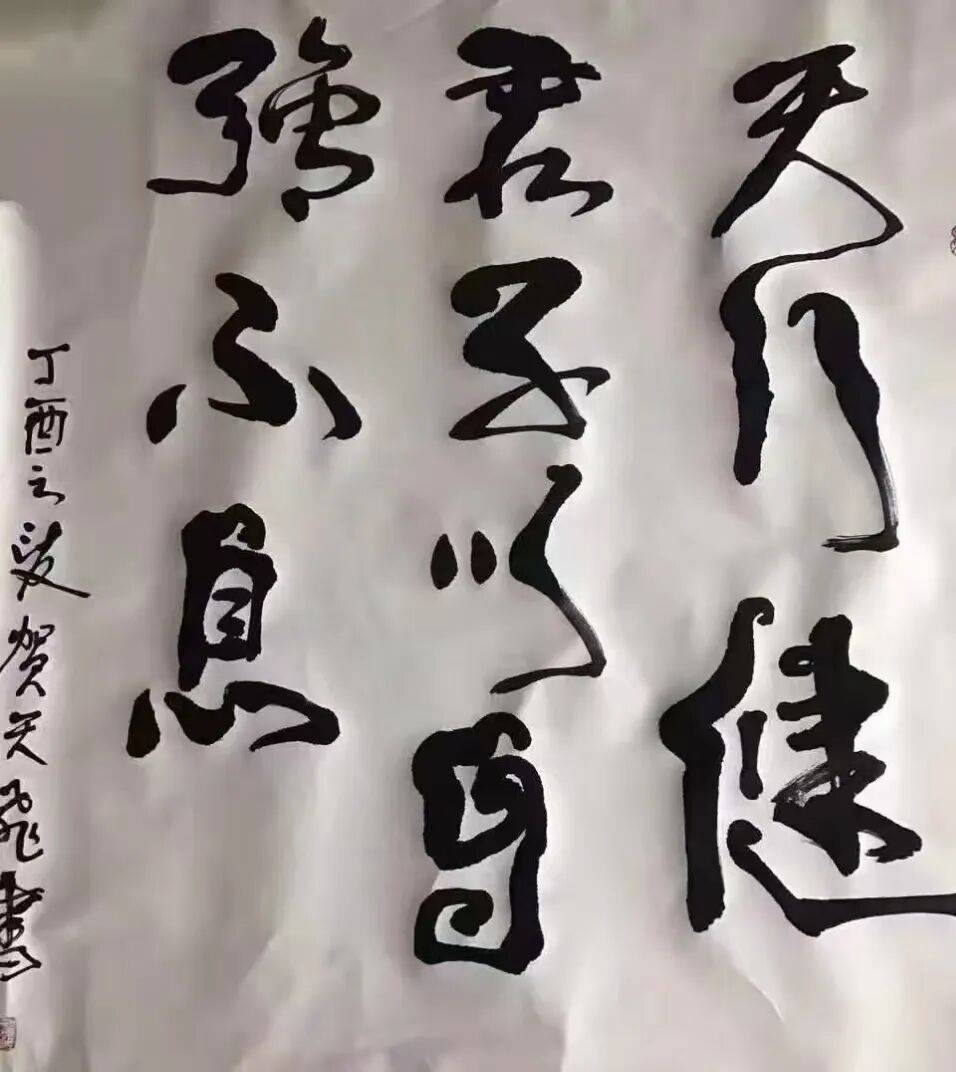 天行健
君子以自
强不息
丁酉之夏贺天飞书